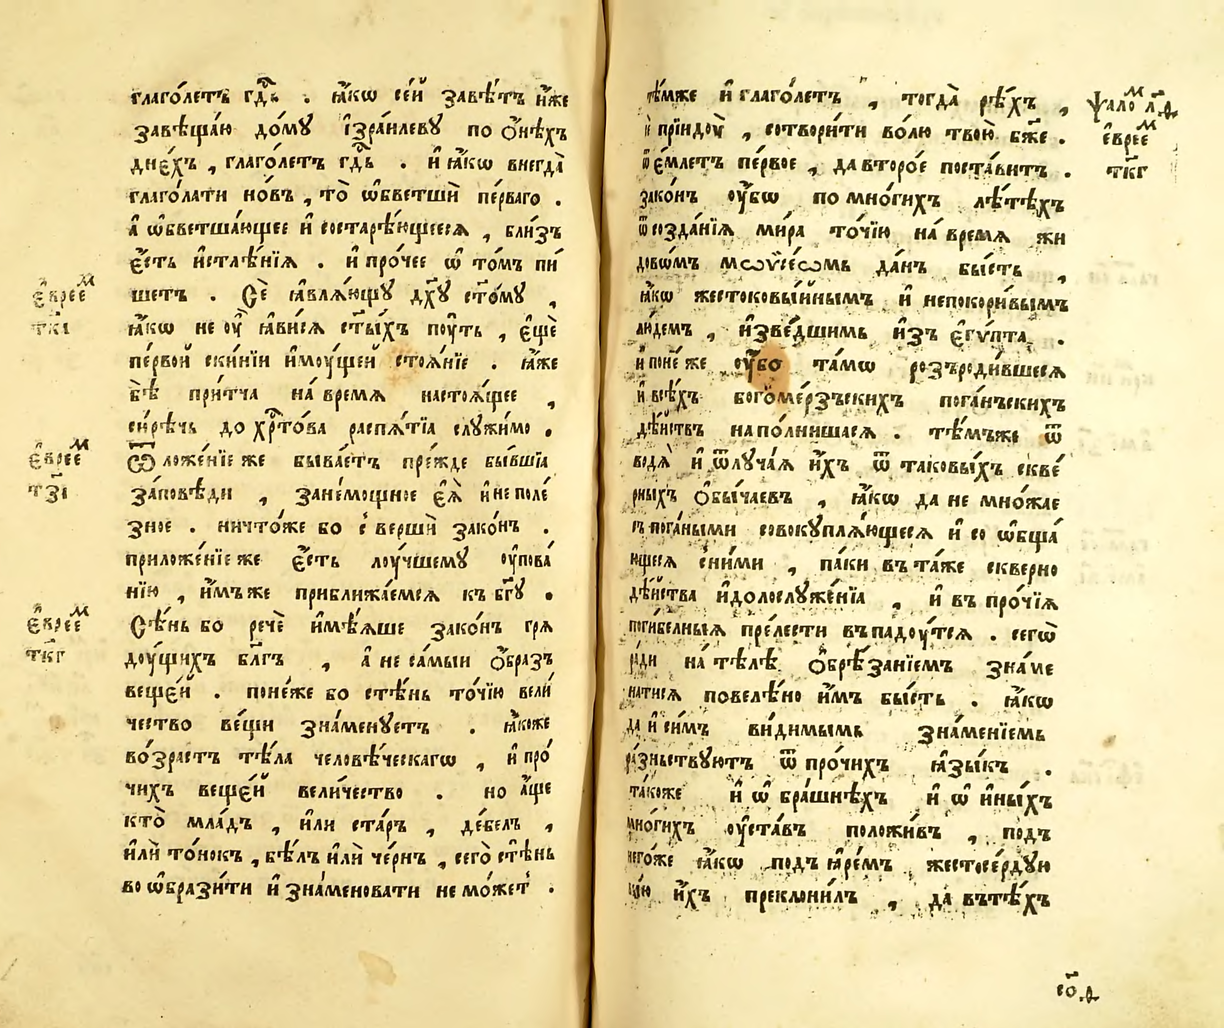 глаго́летъ гд҇ь . ꙗ҆́кѡ се́й завѣ́тъ и҆́же
завѣща́ю до́мꙋ і҆зра́илевꙋ по ѻ҆́нѣхъ
дне́хъ , глаго́летъ гд҇ь . и҆ ꙗ҆́кѡ внегда̀
глаго́лати но́въ , то̀ ѡ҆бветшѝ пе́рваго .
а҆ ѡ҆бветша́ющее и҆ состарѣ́ющееся , бли́зъ
є҆́сть и҆стлѣ́нїѧ . и҆ про́чее ѡ҆ то́мъ пи́
шетъ . Се́ ꙗ҆влѧ́ющꙋ дх҃ꙋ ст҃о́мꙋ ,
є҆вре́ем
ткі
ꙗ҆́кѡ не оу҆̀ ꙗ҆ви́сѧ ст҃ы́хъ поу́ть , є҆щѐ
пе́рвой ски́нїи и҆моу́щей стоѧ́нїе . ꙗ҆́же
бѣ̀ при́тча на́ времѧ настоѧ́щее ,
си́рѣчь до хр҇то́ва распѧ́тїа слꙋжи́мо .
є҆вре́ем
тзі
Ѿложе́нїе же быва́етъ пре́жде бы́вшїа
за́повѣди , зане́мощное є҆ѧ̀ и҆ не поле́
зное . ничто́же бо с вершѝ зако́нъ .
приложе́нїе же є҆́сть лоу́чшемꙋ оу҆пова́
нїю , и҆́мъ же приближа́емсѧ къ бг҃ꙋ .
є҆вре́ем
ткг
Сѣ́нь бо речѐ и҆мѣ́ѧше зако́нъ грѧ
доу́щихъ бл҃гъ , а҆ не са́мыи ѻ҆́бразъ
веще́й . поне́же бо стѣ́нь то́чїю вели́
чество ве́щи зна́менꙋетъ . ꙗ҆́коже
во́зрастъ тѣ́ла человѣ́ческагѡ , и҆ про́
чихъ веще́й вели́чество . но а҆́ще
кто̀ мла́дъ , и҆́ли ста́ръ , де́белъ ,
и҆лѝ то́нокъ , бѣ́лъ и҆лѝ че́рнъ , сего̀ стѣ́нь
во ѡ҆брази́ти и҆ зна́меновати не мо́жет .
тѣ́мже и҆ глаго́летъ , тогда̀ рѣ́хъ ,
ѱало́м л҃д
є҆вре́ем
ткг
се прїидоу̀ , сотвори́ти во́лю твою̀ бж҃е .
ѿе́млетъ пе́рвое , да второ́е поста́витъ .
зако́нъ оу҆́бѡ по мно́гихъ лѣ́тѣхъ
ѿ созда́нїѧ ми́ра то́чїю на́ времѧ жи
до́вѡмъ мѡѵсе́ѡмь да́нъ бы́сть ,
ꙗ҆́кѡ жестоковы́йнымъ и҆ непокори́вымъ
лю́демъ , и҆зве́дшимь и҆зъ є҆гѵ́пта .
и҆ поне́же оу҆́бо та́мѡ розъроди́вшеесѧ
и҆ всѣ́хъ богоме́рзъскихъ пога́нъскихъ
дѣ́йствъ напо́лнишасѧ . тѣ́мъже ѿ
водѧ̀ и҆ ѿлуча́ѧ и҆́хъ ѿ таковы́хъ скве́
рныхъ ѻ҆бы́чаевъ , ꙗ҆́кѡ да не мно́жае
съ пога́ными совокꙋплѧ́ющеесѧ и҆ со ѡ҆бща́
ющесѧ сни́ми , па́ки въ та́же скверно
дѣ́йства и҆долослꙋже́нїа , и҆ въ про́чїѧ
поги́белныѧ пре́лести въпадоу́тсѧ . сегѡ̀
ра́ди на́ тѣлѣ ѻ҆брѣ́занїемъ зна́ме
натисѧ повелѣ́но и҆̀мъ бы́сть . ꙗ҆́кѡ
да и҆ си́мъ ви́димымь зна́менїемь
ра́зньствꙋютъ ѿ про́чихъ ꙗ҆зы́къ .
та́коже и҆ ѡ҆ бра́шнѣхъ и҆ ѡ҆ и҆ны́хъ
мно́гихъ оу҆ста́въ положи́въ , подъ
него́же ꙗ҆́кѡ подъ ꙗ҆ре́мъ жестосе́рдꙋю
и҆́хъ преклони́лъ , да́ въ тѣ́хъ
со҃д